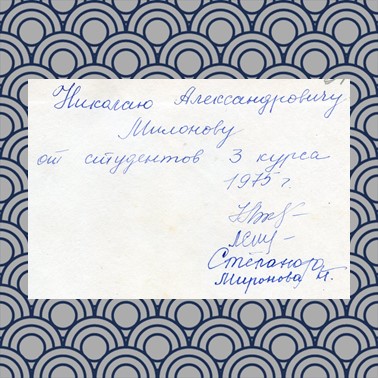 Николаю Александровичу
Милонову
от студентов 3 курса
1975 г.
Степанова
Миронова Т.